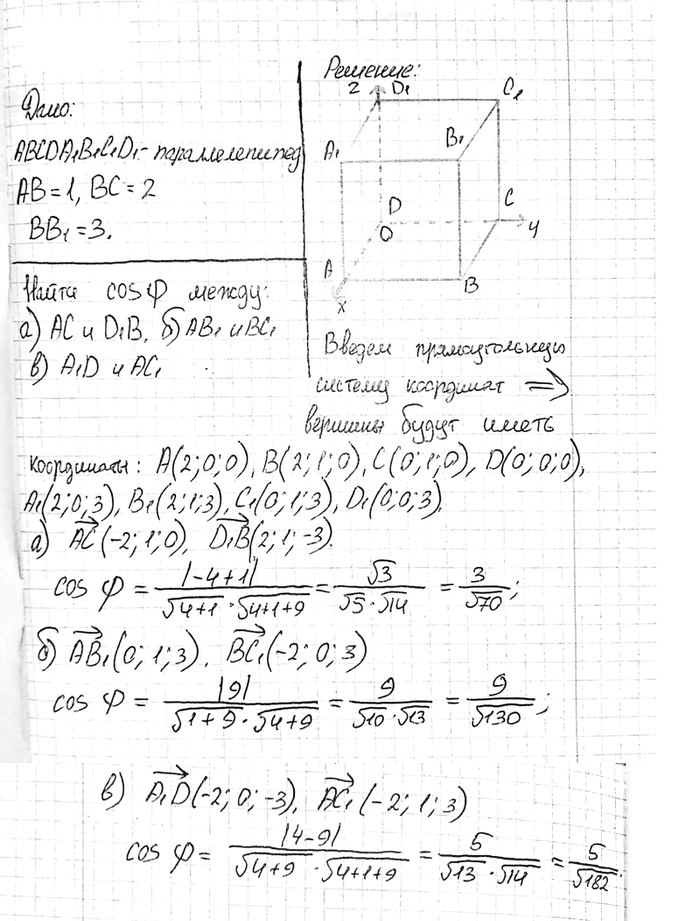 Дано:
ABCDA₁B₁C₁D₁ - параллелепипед
AB = 1, BC = 2
BB₁ = 3.
Найти cos φ между:
а) AC и D₁B, б) AB₁ и BC₁
в) A₁D и AC₁
Решение:
z D₁ C₁
A₁ B₁
D C
O y
A B
x
Введем прямоугольную
систему координат ⇒
вершины будут иметь
координаты: A(2; 0; 0), B(2; 1; 0), C(0; 1; 0), D(0; 0; 0),
A₁(2; 0; 3), B₁(2; 1; 3), C₁(0; 1; 3), D₁(0; 0; 3).
а) AC→(-2; 1; 0), D₁B→(2; 1; -3).
cos φ = |-4+1| / (√4+1 · √4+1+9) = √3 / (√5 · √14) = 3 / √70;
б) AB₁→(0; 1; 3), BC₁→(-2; 0; 3)
cos φ = |9| / (√1+9 · √4+9) = 9 / (√10 · √13) = 9 / √130;
в) A₁D→(-2; 0; -3), AC₁→(-2; 1; 3)
cos φ = |4-9| / (√4+9 · √4+1+9) = 5 / (√13 · √14) = 5 / √182.